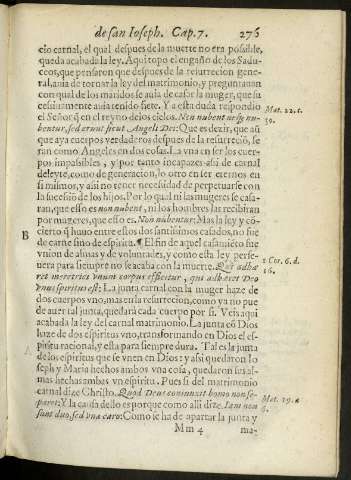 de san Ioseph. Cap. 7. 276
cio carnal, el qual despues de la muerte no era possible,
queda acabada la ley. Aqui topo el engaño de los Sadu-
ceos, que pensaron que despues de la resurrecion gene-
ral, auia de tornar la ley del matrimonio, y preguntauan
con qual de los maridos se auia de casar la muger, que su
cessiuamente auia tenido siete. Y a esta duda respondio
el Señor, q̃ en el reyno de los cielos. Non nubent neq; nu-
bentur, sed erunt sicut Angeli Dei: Que es dezir, que aũ
que aya cuerpos verdaderos despues de la resurreciõ, se
ran como Angeles en dos cosas. La vna en ser los cuer-
pos impassibles, y por tanto incapazes assi de carnal
deleyte, como de generacion, lo otro en ser eternos en
si mismos, y assi no tener necessidad de perpetuarse con
la sucession de los hijos. Por lo qual ni las mugeres se casa-
ran, que esso es non nubent, ni los hombres las recibiran
por mugeres, que esso es. Non nubentur: Mas la ley y cõ-
cierto q̃ huuo entre essos dos santissimos casados, no fue
de carne sino de espiritu. ¶ El fin de aquel casamiẽto fue
vnion de almas y de voluntades, y como esta ley perse-
uera para siempre no se acaba con la muerte. Qui adhæ
ret meretrici vnum corpus efficitur, qui adhæret Deo
vnus spiritus est: La junta carnal con la muger haze de
dos cuerpos vno, mas en la resurrecion, como ya no pue
de auer tal junta, quedará cada cuerpo por si. Veis aqui
acabada la ley del carnal matrimonio. La junta cõ Dios
haze de dos espiritus vno, transformando en Dios el es-
piritu racional, y esta para siempre dura. Tal es la junta
de los espiritus que se vnen en Dios: y assi quedaron Io
seph y Maria hechos ambos vna cosa, quedaron sus al-
mas hechas ambas vn espiritu. Pues si del matrimonio
carnal dize Christo. Quod Deus coniunxit homo non se-
paret: Y la causa dello es porque como alli dize. Iam non
sunt duo, sed vna caro: Como se ha de apartar la junta y
Mm 4 ma-
Mat. 22. c.
30.
B
1 Cor. 6. d.
16.
Mat. 19. a